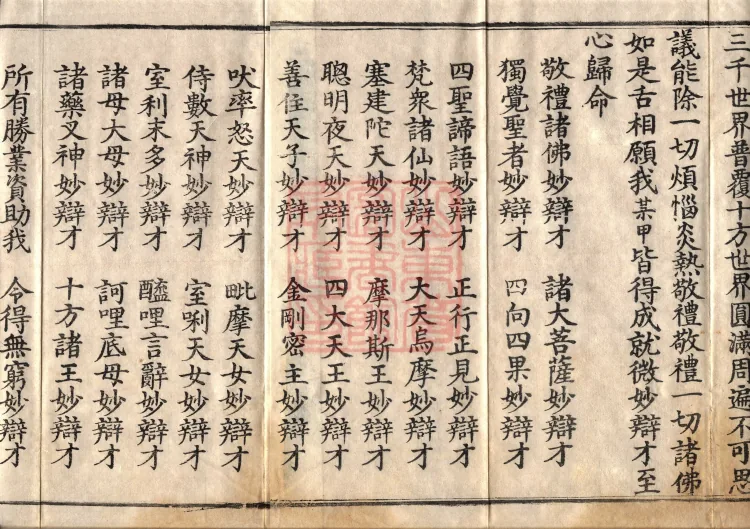 三千世界普覆十方世界圓滿周遍不可思
議能除一切煩惱炎熱敬禮敬禮一切諸佛
如是舌相願我某甲皆得成就微妙辯才至
心歸命
敬禮諸佛妙辯才 諸大菩薩妙辯才
獨覺聖者妙辯才 四向四果妙辯才
四聖諦語妙辯才 正行正見妙辯才
梵衆諸仙妙辯才 大天烏摩妙辯才
塞建陀天妙辯才 摩那斯王妙辯才
聰明夜天妙辯才 四大天王妙辯才
善住天子妙辯才 金剛密主妙辯才
吠率怒天妙辯才 毗摩天女妙辯才
侍數天神妙辯才 室唎天女妙辯才
室利末多妙辯才 醯哩言辭妙辯才
諸母大母妙辯才 訶哩底母妙辯才
諸藥叉神妙辯才 十方諸王妙辯才
所有勝業資助我 令得無窮妙辯才